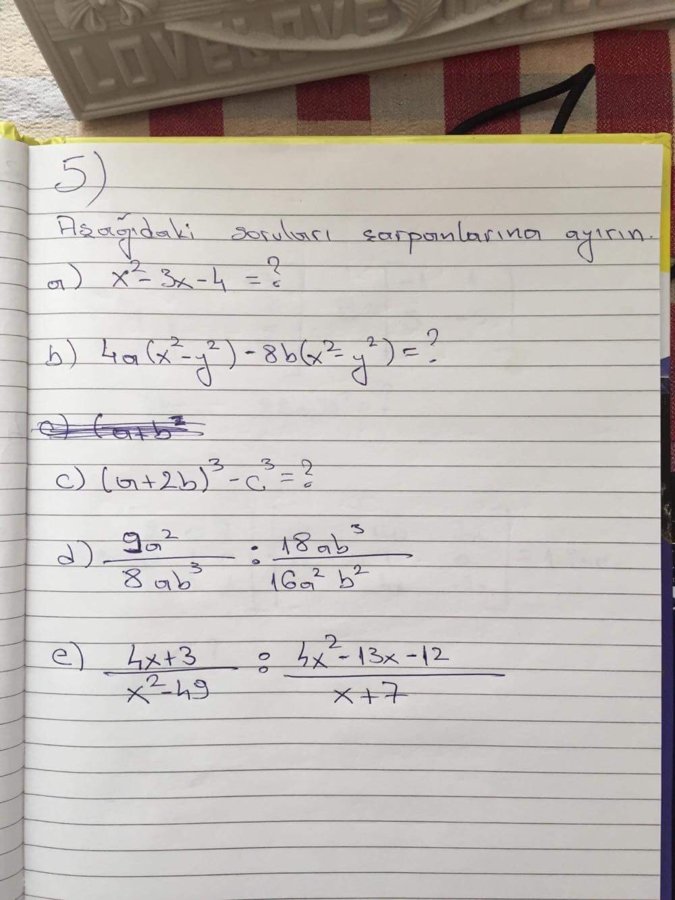 LOVELOVELOVE
5)
Aşağıdaki soruları çarpanlarına ayırın.
a) x²-3x-4 =?
b) 4a(x²-y²)-8b(x²-y²)=?
c) (a+b²
c) (a+2b)³-c³=?
d) 9a²/8ab³ : 18ab³/16a²b²
e) 4x+3/x²-49 : 4x²-13x-12/x+7